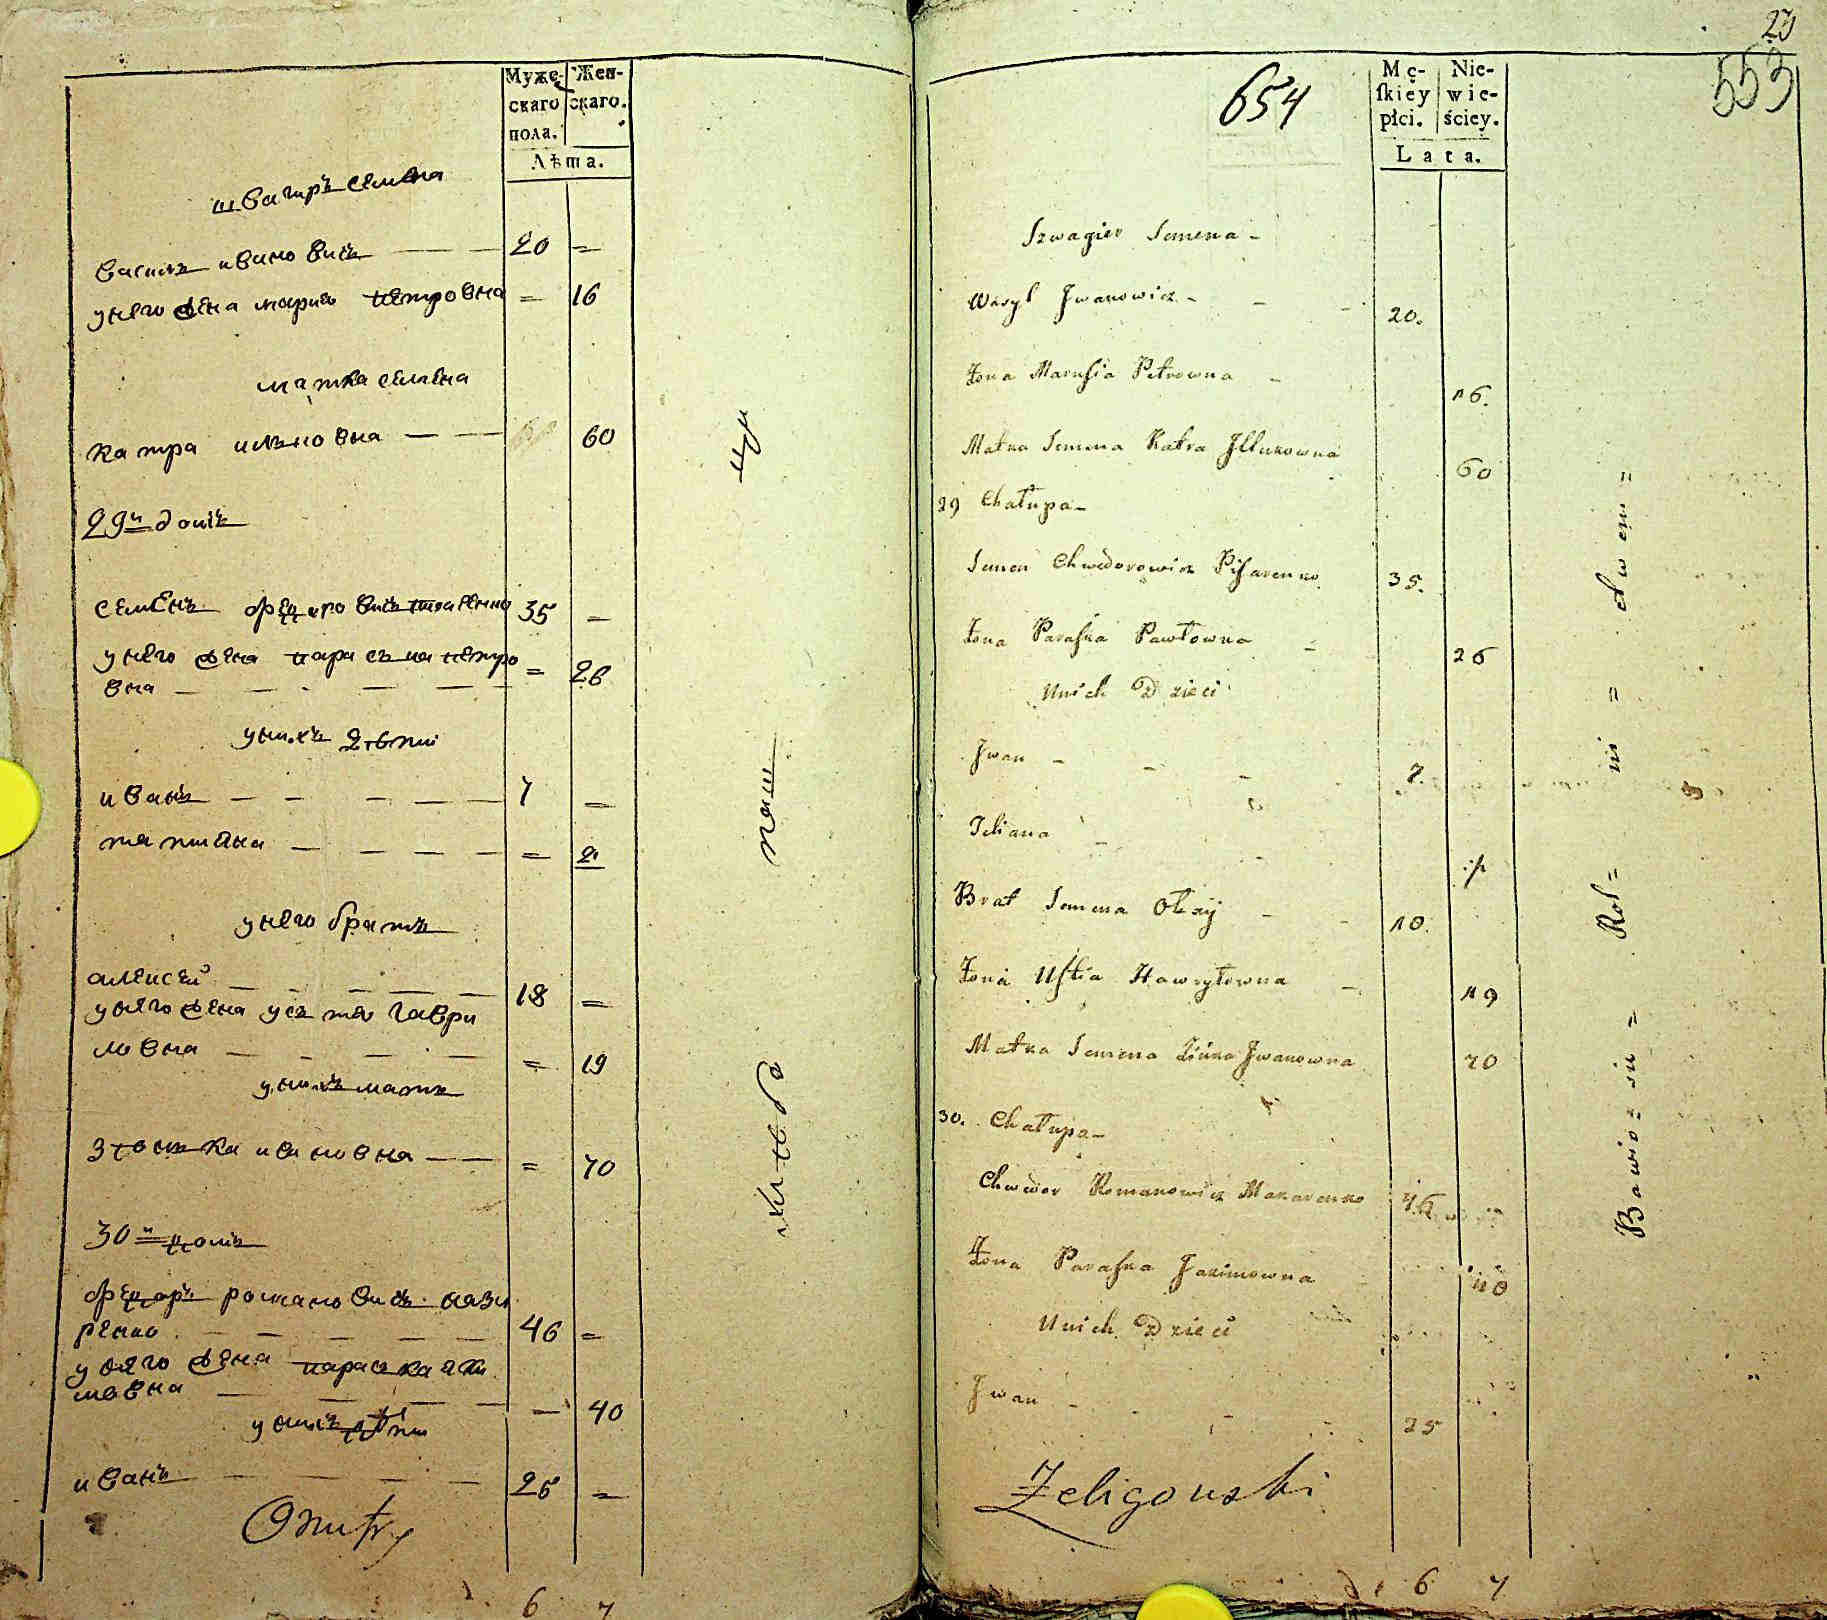 Муже-
скаго
пола.
Жен-
скаго.
Лѣта.
швагръ семена
василь ивановичъ — — 20 =
унего жена мария петровна = 16
матка семена
катра ильковна — — 60
29й домъ
семенъ федоровичъ 35 =
унего жена параська петро
вна — — — — = 26
унихъ дѣти
иванъ — — — — 7 =
татиана — — — — = 2
унего братъ
алексей — — — — 18 =
унего жена устя гаври
ловна — — — — = 19
унихъ мать
ивановна — — = 70
30й домъ
федоръ романовичъ
ренко — — — — 46 =
унего жена параска яки
мовна — — — — 40
унихъ дѣти
иванъ — — — — 25 =
6 7
паш
хлѣба
23
553
654
Mę-
ſkiey
płci.
Nie-
wie-
ściey.
Lata.
Szwagier Semena -
Wasyl Jwanowicz - - - 20.
Żona Marusia Petrowna - 16.
Matka Semena Katra Jllukowna 60
29 Chałupa -
Semen Chwedorowicz Piſarenko 35.
Żona Paraſka Pawłowna - 26
Unich Dzieci
Jwan - - - 7.
Tetiana - -
Brat Semena Olexy - - 18.
Żona Uſtia Hawryłowna - 19
Matka Semena Jwanowna 70
30. Chałupa -
Chwedor Romanowicz Makarenko 46
Żona Paraſka Jakimowna 40
Unich Dzieci
Jwan - - - - 25
Żeligowski
6 7
Bawio = sie = Rol = ni = ctwem =